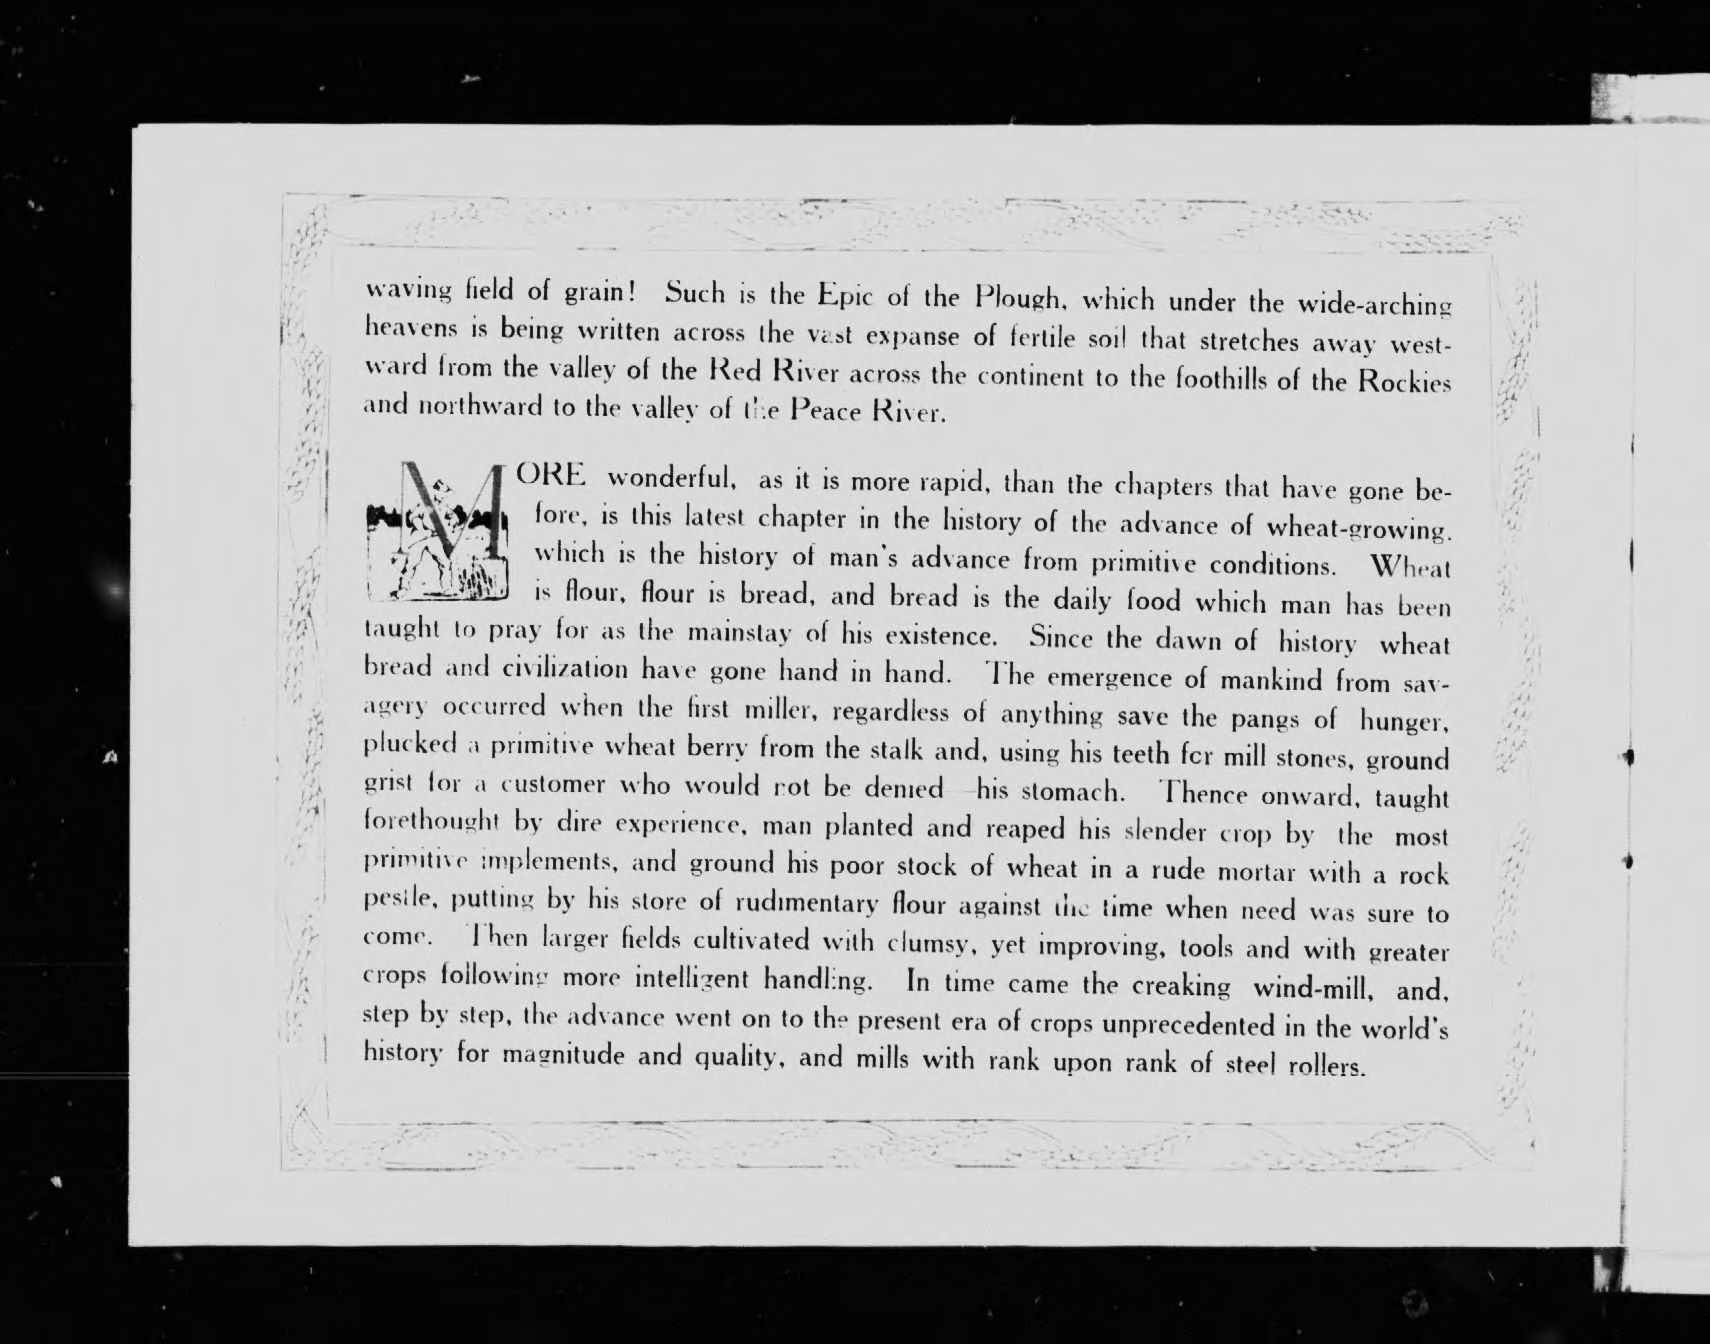 waving field of grain! Such is the Epic of the Plough, which under the wide-arching
heavens is being written across the vast expanse of fertile soil that stretches away west-
ward from the valley of the Red River across the continent to the foothills of the Rockies
and northward to the valley of the Peace River.
MORE wonderful, as it is more rapid, than the chapters that have gone be-
fore, is this latest chapter in the history of the advance of wheat-growing,
which is the history of man's advance from primitive conditions. Wheat
is flour, flour is bread, and bread is the daily food which man has been
taught to pray for as the mainstay of his existence. Since the dawn of history wheat
bread and civilization have gone hand in hand. The emergence of mankind from sav-
agery occurred when the first miller, regardless of anything save the pangs of hunger,
plucked a primitive wheat berry from the stalk and, using his teeth for mill stones, ground
grist for a customer who would not be denied—his stomach. Thence onward, taught
forethought by dire experience, man planted and reaped his slender crop by the most
primitive implements, and ground his poor stock of wheat in a rude mortar with a rock
pestle, putting by his store of rudimentary flour against the time when need was sure to
come. Then larger fields cultivated with clumsy, yet improving, tools and with greater
crops following more intelligent handling. In time came the creaking wind-mill, and,
step by step, the advance went on to the present era of crops unprecedented in the world's
history for magnitude and quality, and mills with rank upon rank of steel rollers.